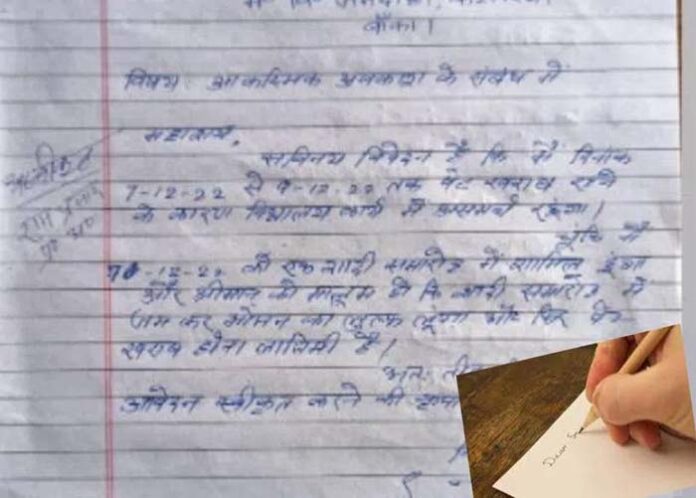 बाँका।
विषय : आकस्मिक अवकाश के संबंध में
महाशय,
सविनय निवेदन है कि मैं दिनांक
7-12-22 से 9-12-22 तक पेट खराब रहने
के कारण विद्यालय कार्य में असमर्थ रहूंगा।
चूंकि मैं
-12-22 को एक शादी समारोह में शामिल हुआ
और श्रीमान को मालूम हो कि शादी समारोह में
जम कर भोजन का लुत्फ लूंगा और फिर पेट
खराब होना लाजिमी है।
अतः
आवेदन स्वीकृत करने की कृपा
अस्वीकृत
राम
Dear